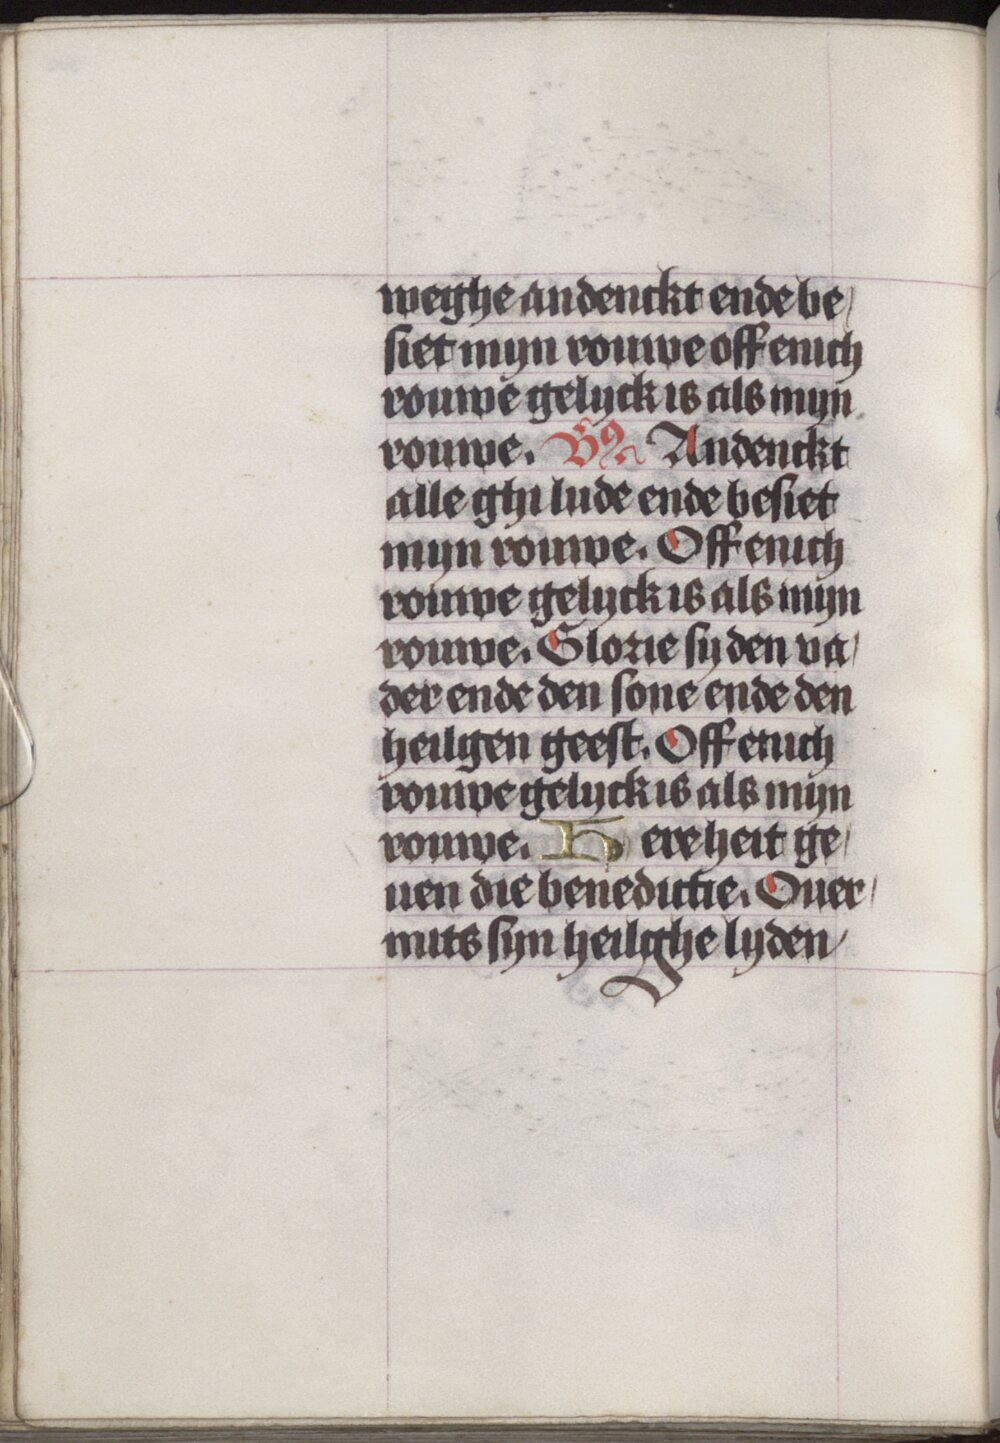 weghe andenckt ende be/
siet mijn rouwe off enich
rouwe gelyck is als mijn
rouwe. Andenckt
alle ghi lude ende besiet
mijn rouwe. Off enich
rouwe gelyck is als mijn
rouwe. Glorie sy den va/
der ende den sone ende den
heiligen geest. Off enich
rouwe gelyck is als mijn
rouwe. Here heit ge/
uen die benedictie. Ouer/
mits sijn heilighe lyden/